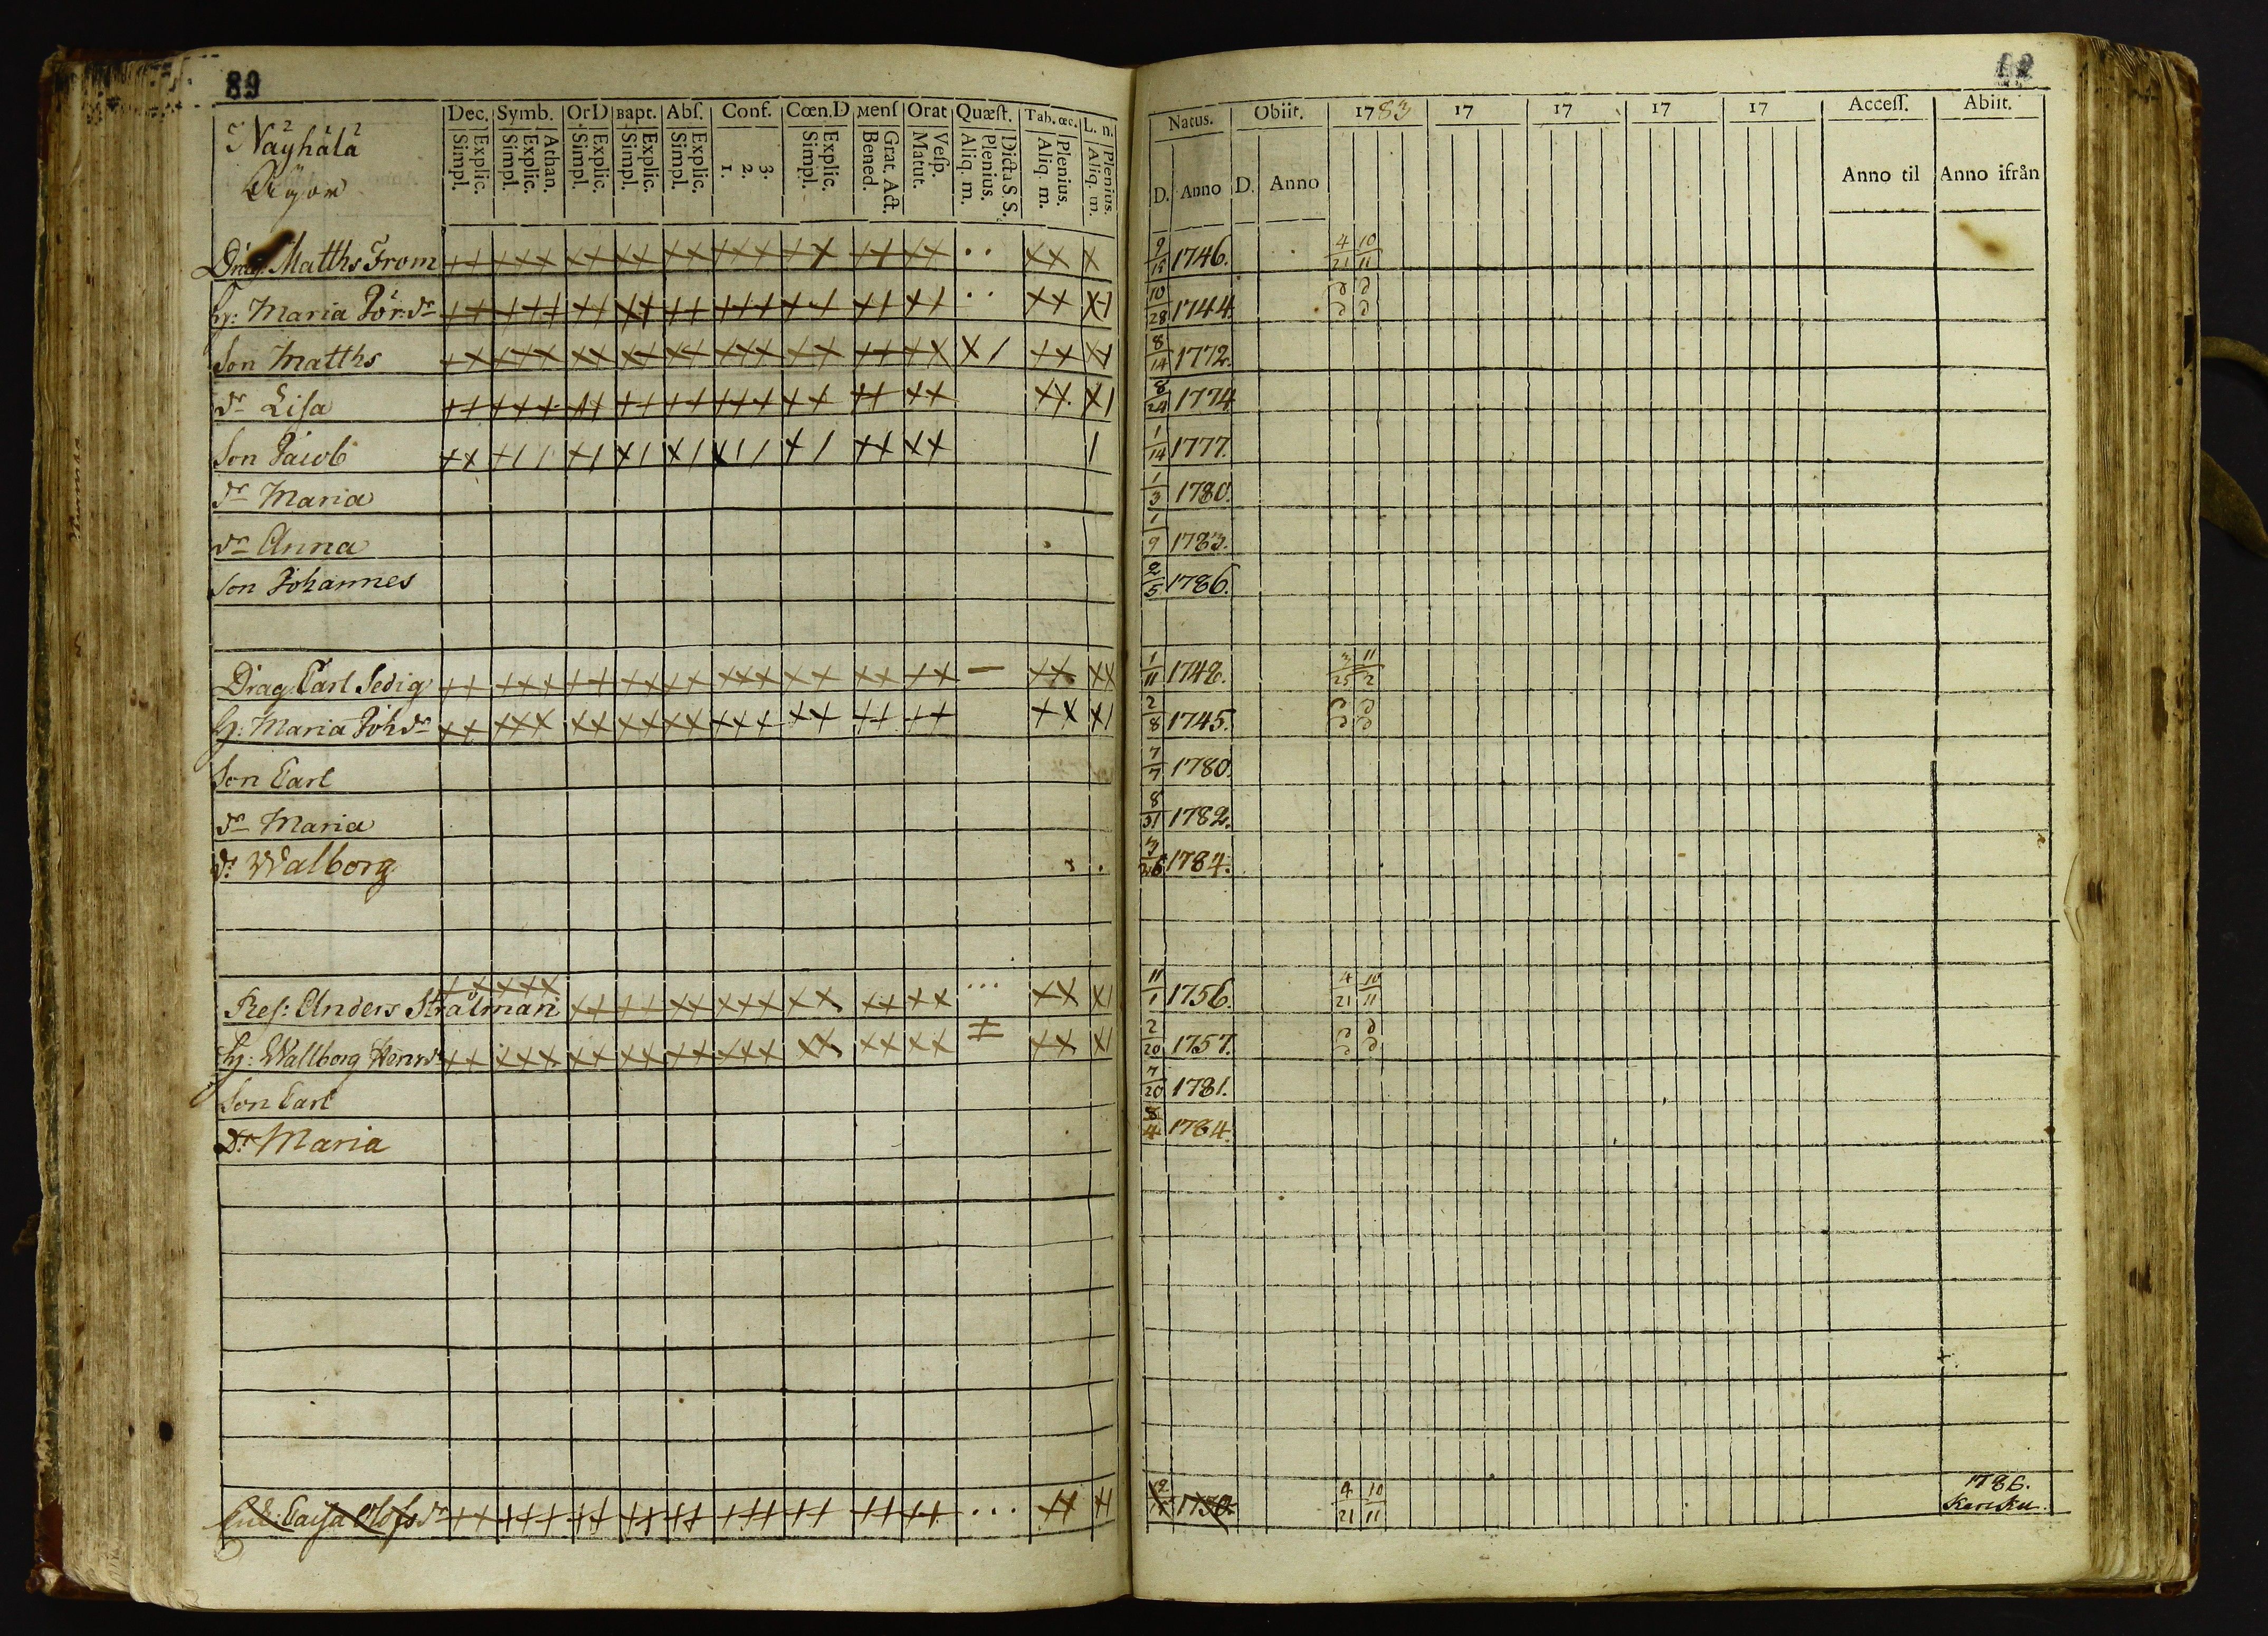 89
Dec. Symb. Or D Bapt. Abſ. Conf. Cœn. D Menſ Orat Quæſt. Tab. œc. L. n.
Simpl. Explic. Simpl. Explic. Athan. Simpl. Explic. Simpl. Explic. Simpl. Explic. 1. 2. 3. Simpl. Explic. Bened. Grat. Act. Matut. Veſp. Aliq. m. Plenius. Dicta S. S. Aliq. m. Plenius. Aliq. m. Plenius.
Näyhälä
Drag. Matths From
Hу: Maria Joh: dr
Son Matths
dr Lisa
Son Jacob
dr Maria
dr Anna
Son Johannes
Drag. Carl Sedig
H: Maria Joh dr
Son Carl
dr Maria
dr Walborg
Res: Anders Strålman
H: Wallborg Henr dr
Son Carl
Dr Maria
Enk: Caisa Olofs dr
Natus. Obiit. 1783 17 17 17 17 Acceſſ. Abiit.
D. Anno D. Anno Anno til Anno ifrån
9/18 1746. 4/21 10/11
10/28 1744
8/14 1772.
8/24 1774
1/14 1777.
1/3 1780.
1/9 1783.
2/5 1786.
1/11 1748. 3/25 11/2
2/8 1745.
7/7 1780.
8/31 1782.
3/26 1784.
11/1 1756. 4/21 10/11
2/20 1757.
7/20 1781.
8/4 1784.
1730 4/21 10/11 1786.
Karisku.